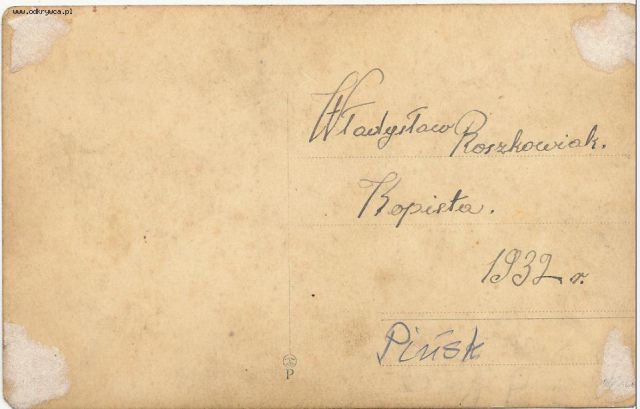 www.odkrywca.pl
Władysław Roszkowiak.
Kopista.
1932 r.
Pińsk
P